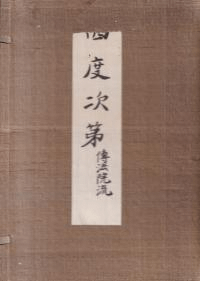 四度次第
傳法院流